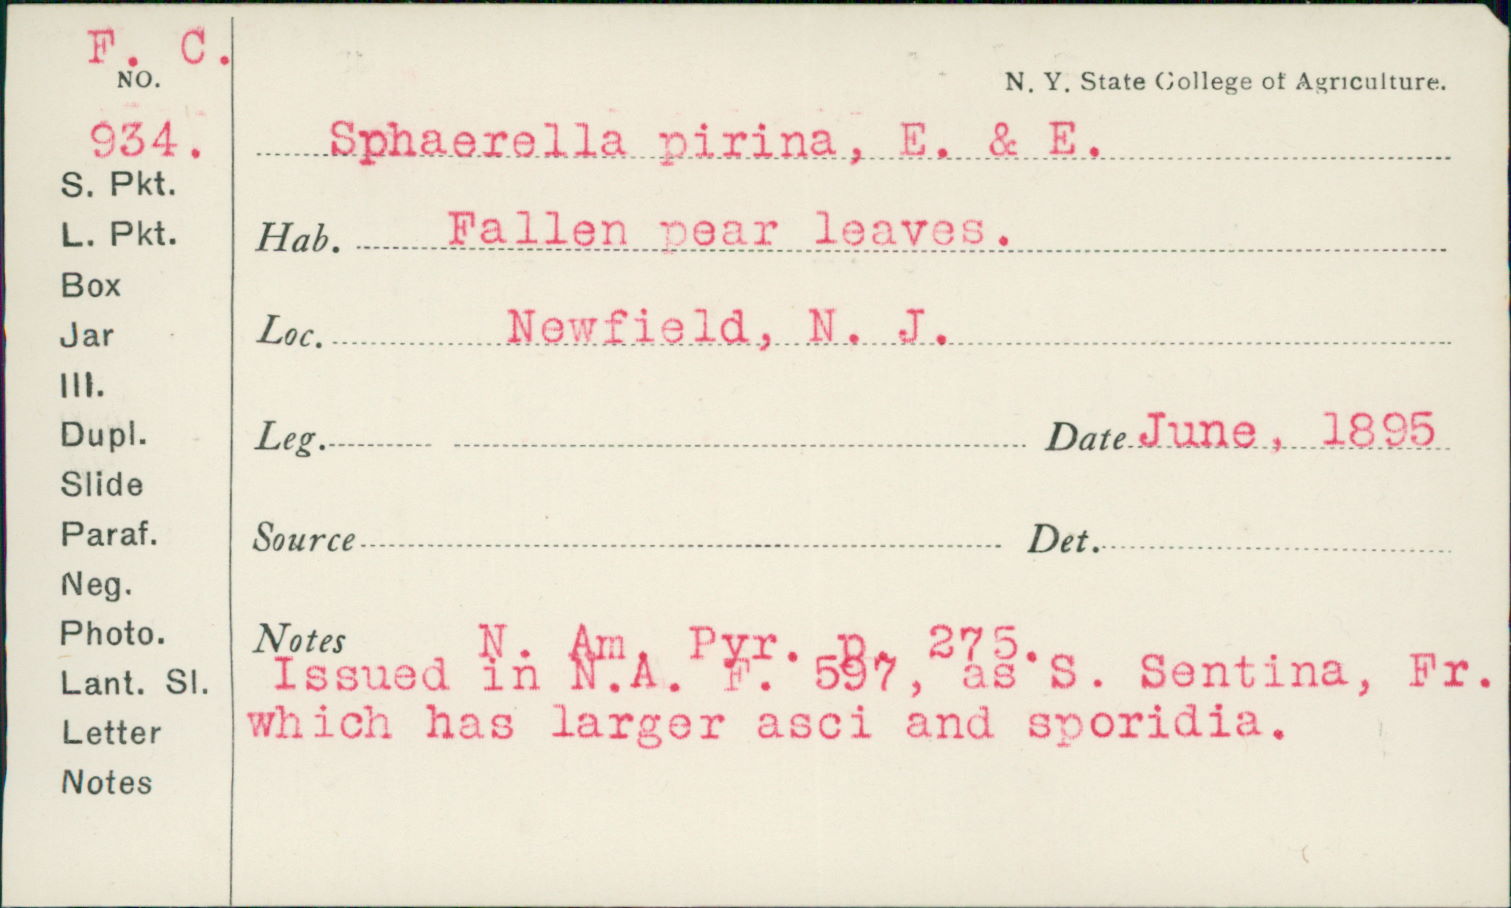 F. C.
NO.
934.
S. Pkt.
L. Pkt.
Box
Jar
Ill.
Dupl.
Slide
Paraf.
Neg.
Photo.
Lant. Sl.
Letter
Notes
N. Y. State College of Agriculture.
Sphaerella pirina, E. & E.
Hab. Fallen pear leaves.
Loc. Newfield, N. J.
Leg. Date June, 1895
Source Det.
Notes N. Am. Pyr. p. 275.
Issued in N.A. F. 597, as S. Sentina, Fr.
which has larger asci and sporidia.